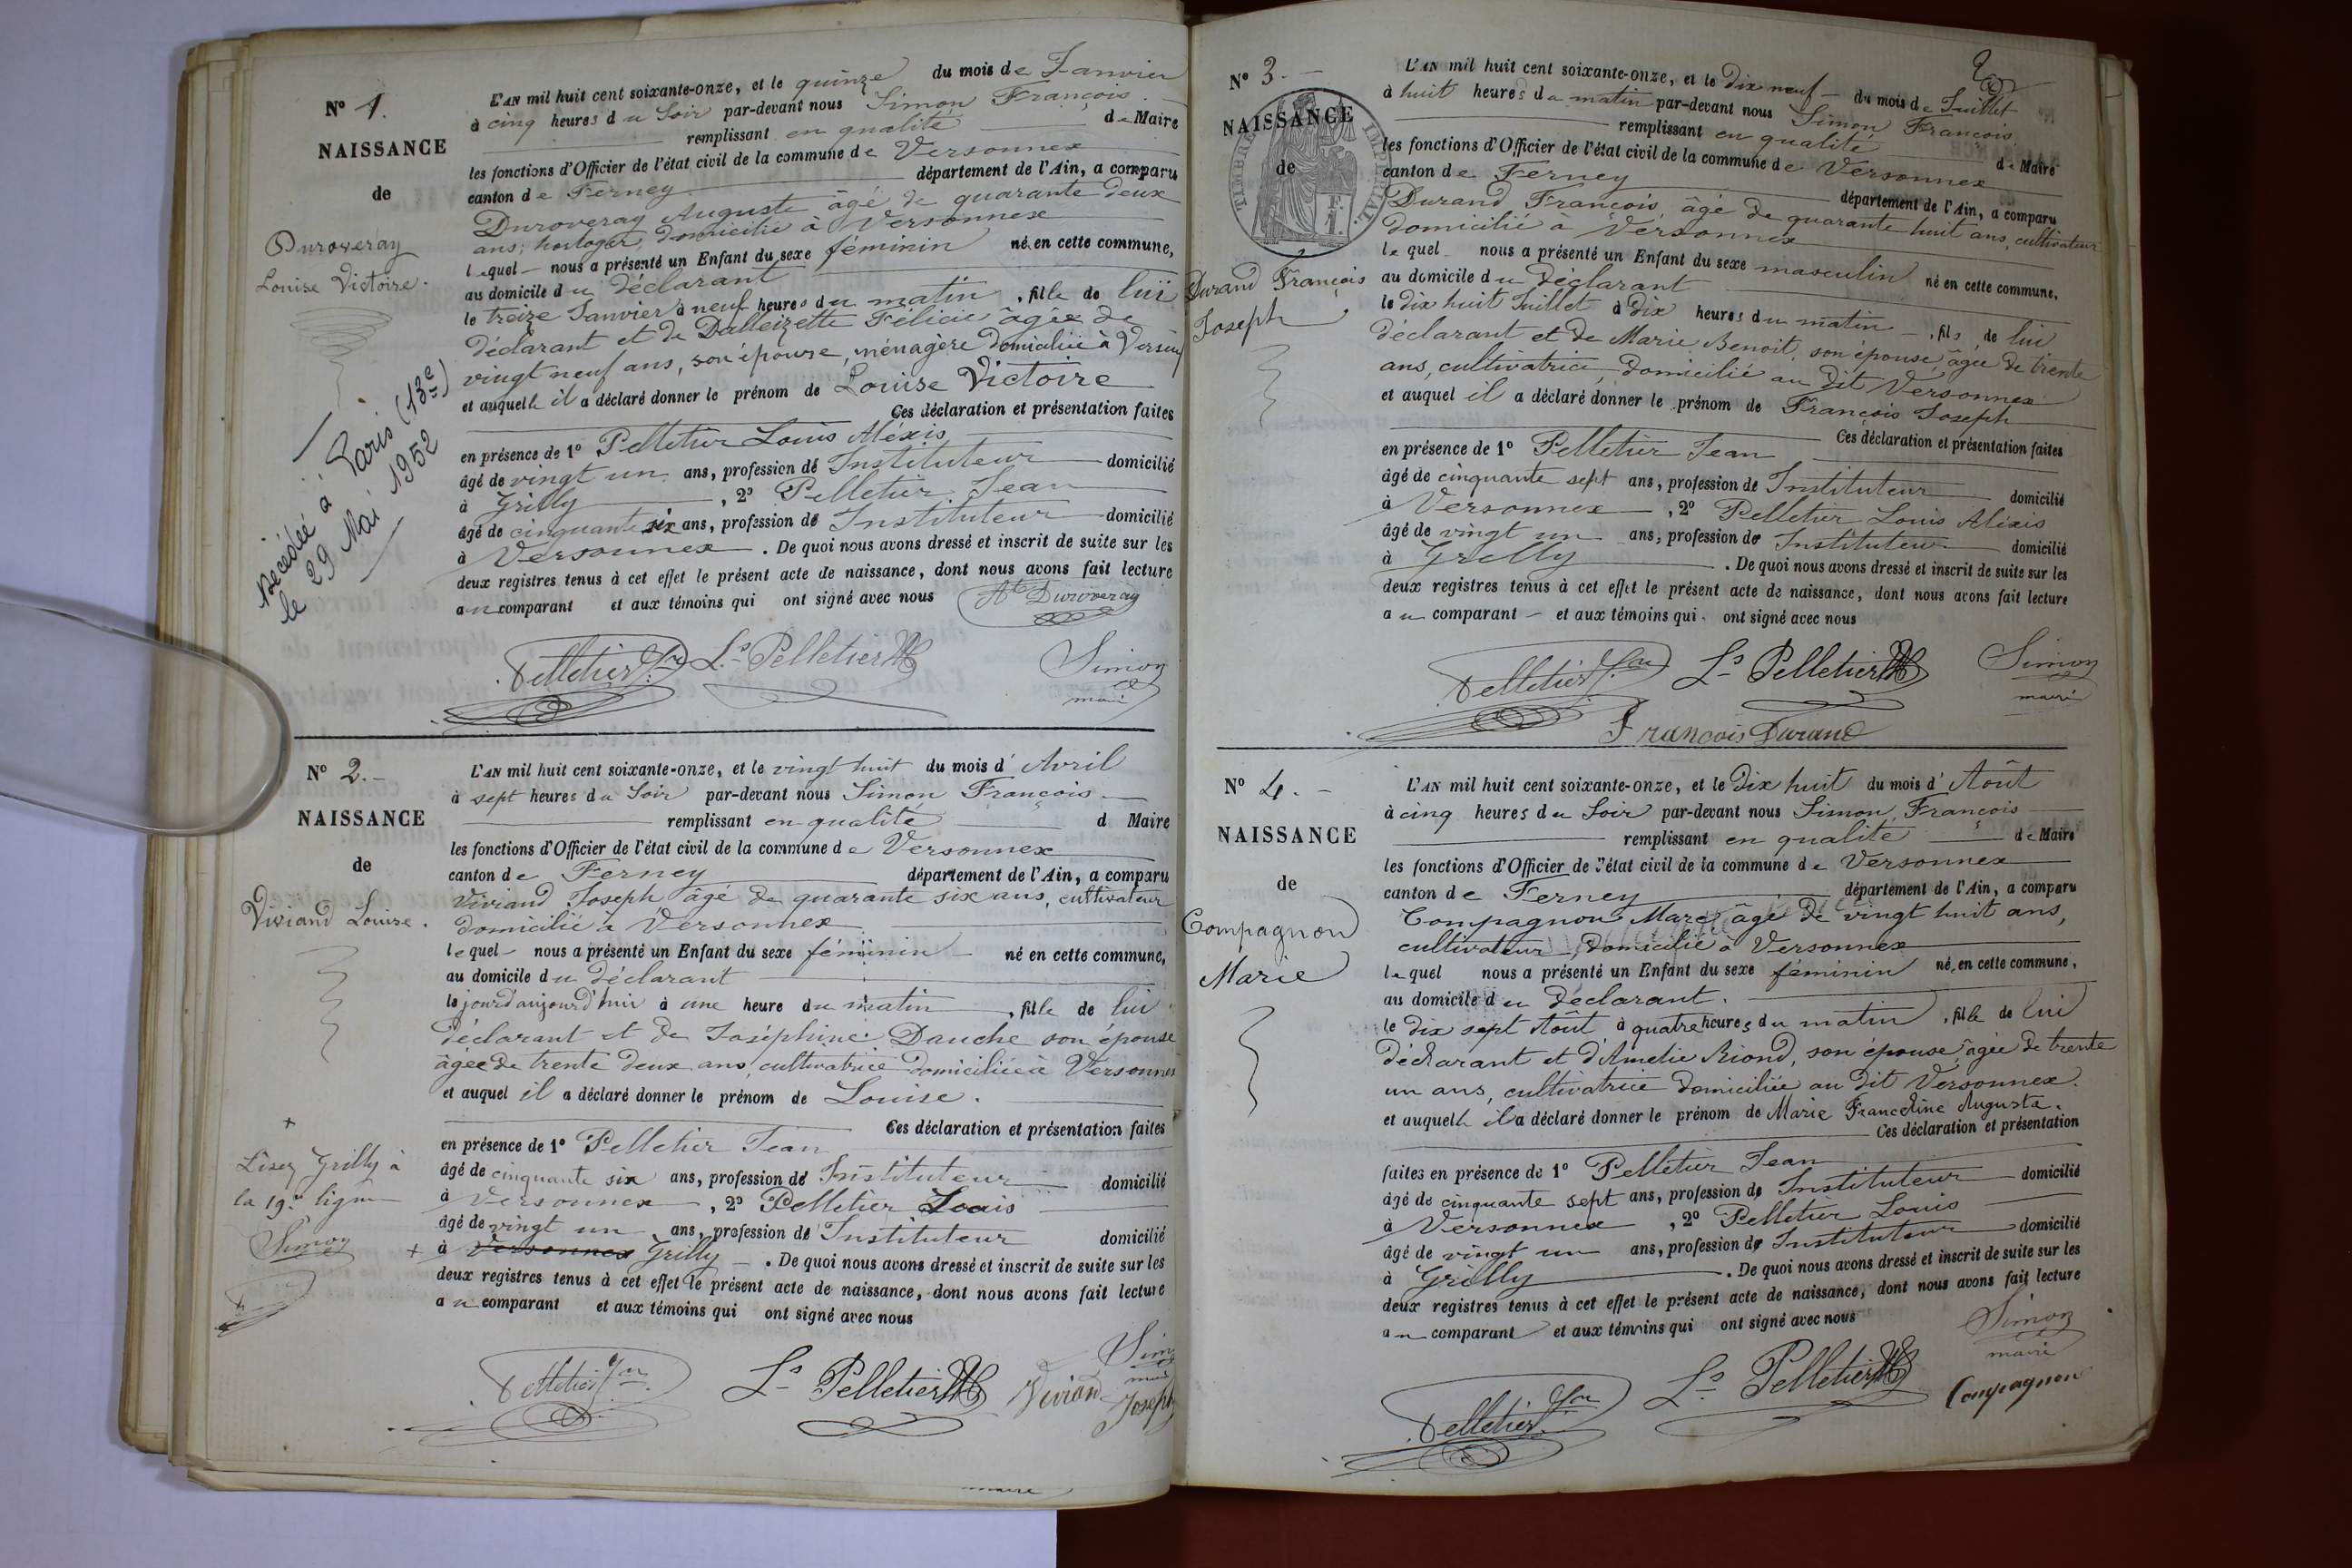 N° 1.
NAISSANCE
de
Duroveray
Louise Victoire.
Décédée à Paris (13e)
le 29 Mai 1952
L'AN mil huit cent soixante-onze, et le quinze du mois de Janvier
à cinq heures du Soir par-devant nous Simon François
remplissant en qualité de Maire
les fonctions d'Officier de l'état civil de la commune de Versonnex
canton de Ferney département de l'Ain, a comparu
Duroveray Auguste âgé de quarante deux
ans, horloger, domicilié à Versonnex
lequel nous a présenté un Enfant du sexe féminin né en cette commune,
au domicile du déclarant
le treize Janvier à neuf heures du matin, fille de lui
déclarant et de Dalleizette Félicie âgée de
vingt neuf ans, son épouse, ménagère domiciliée à
et auquelle il a déclaré donner le prénom de Louise Victoire
Ces déclaration et présentation faites
en présence de 1° Pelletier Louis Aléxis
âgé de vingt un ans, profession de Instituteur domicilié
à Grilly, 2° Pelletier Jean
âgé de cinquante six ans, profession de Instituteur domicilié
à Versonnex. De quoi nous avons dressé et inscrit de suite sur les
deux registres tenus à cet effet le présent acte de naissance, dont nous avons fait lecture
au comparant et aux témoins qui ont signé avec nous
Duroveray
Pelletier Jn Ls Pelletier Simon
maire
N° 2.
NAISSANCE
de
Viviand Louise.
+
Lisez Grilly à
la 19e ligne
Simon
L'AN mil huit cent soixante-onze, et le vingt huit du mois d'Avril
à sept heures du Soir par-devant nous Simon François
remplissant en qualité d Maire
les fonctions d'Officier de l'état civil de la commune de Versonnex
canton de Ferney département de l'Ain, a comparu
Viviand Joseph âgé de quarante six ans, cultivateur
domicilié à Versonnex
lequel nous a présenté un Enfant du sexe féminin né en cette commune,
au domicile du déclarant
le jourd'aujourd'hui à une heure du matin, fille de lui
déclarant et de Joséphine Dauche son épouse
âgée de trente deux ans, cultivatrice domiciliée à Versonnex
et auquel il a déclaré donner le prénom de Louise.
Ces déclaration et présentation faites
en présence de 1° Pelletier Jean
âgé de cinquante six ans, profession de Instituteur domicilié
à Versonnex, 2° Pelletier Louis
âgé de vingt un ans, profession de Instituteur domicilié
+ à Versonnex Grilly. De quoi nous avons dressé et inscrit de suite sur les
deux registres tenus à cet effet le présent acte de naissance, dont nous avons fait lecture
au comparant et aux témoins qui ont signé avec nous
Pelletier Jn Ls Pelletier Viviand Joseph
N° 3.
NAISSANCE
de
TIMBRE IMPERIAL
Durand François
Joseph
2
L'AN mil huit cent soixante-onze, et le Dix neuf du mois de Juillet
à huit heures du matin par-devant nous Simon François
remplissant en qualité de Maire
les fonctions d'Officier de l'état civil de la commune de Versonnex
canton de Ferney département de l'Ain, a comparu
Durand François, âgé de quarante huit ans, cultivateur
domicilié à Versonnex
lequel nous a présenté un Enfant du sexe masculin né en cette commune,
au domicile du déclarant
le dix huit Juillet à dix heures du matin, fils de lui
déclarant et de Marie Benoit, son épouse, âgée de trente
ans, cultivatrice, domicilié au dit Versonnex
et auquel il a déclaré donner le prénom de François Joseph
Ces déclaration et présentation faites
en présence de 1° Pelletier Jean
âgé de cinquante sept ans, profession de Instituteur domicilié
à Versonnex, 2° Pelletier Louis Aléxis
âgé de vingt un ans, profession de Instituteur domicilié
à Grilly. De quoi nous avons dressé et inscrit de suite sur les
deux registres tenus à cet effet le présent acte de naissance, dont nous avons fait lecture
au comparant et aux témoins qui ont signé avec nous
Pelletier Jn Ls Pelletier Simon
maire
François Durand
N° 4.
NAISSANCE
de
Compagnon
Marie
L'AN mil huit cent soixante-onze, et le Dix huit du mois d'Août
à cinq heures du Soir par-devant nous Simon François
remplissant en qualité de Maire
les fonctions d'Officier de l'état civil de la commune de Versonnex
canton de Ferney département de l'Ain, a comparu
Compagnon Marc, âgé de vingt huit ans,
cultivateur, domicilié à Versonnex
lequel nous a présenté un Enfant du sexe féminin né en cette commune,
au domicile du déclarant.
le dix sept Août à quatre heures du matin, fille de lui
déclarant et d'Amelie Riond, son épouse, âgée de trente
un ans, cultivatrice domiciliée au dit Versonnex.
et auquelle il a déclaré donner le prénom de Marie Franceline Augusta.
Ces déclaration et présentation
faites en présence de 1° Pelletier Jean
âgé de cinquante sept ans, profession de Instituteur domicilié
à Versonnex, 2° Pelletier Louis
âgé de vingt un ans, profession de Instituteur domicilié
à Grilly. De quoi nous avons dressé et inscrit de suite sur les
deux registres tenus à cet effet le présent acte de naissance, dont nous avons fait lecture
au comparant et aux témoins qui ont signé avec nous
Simon
maire
Pelletier Jn Ls Pelletier Compagnon